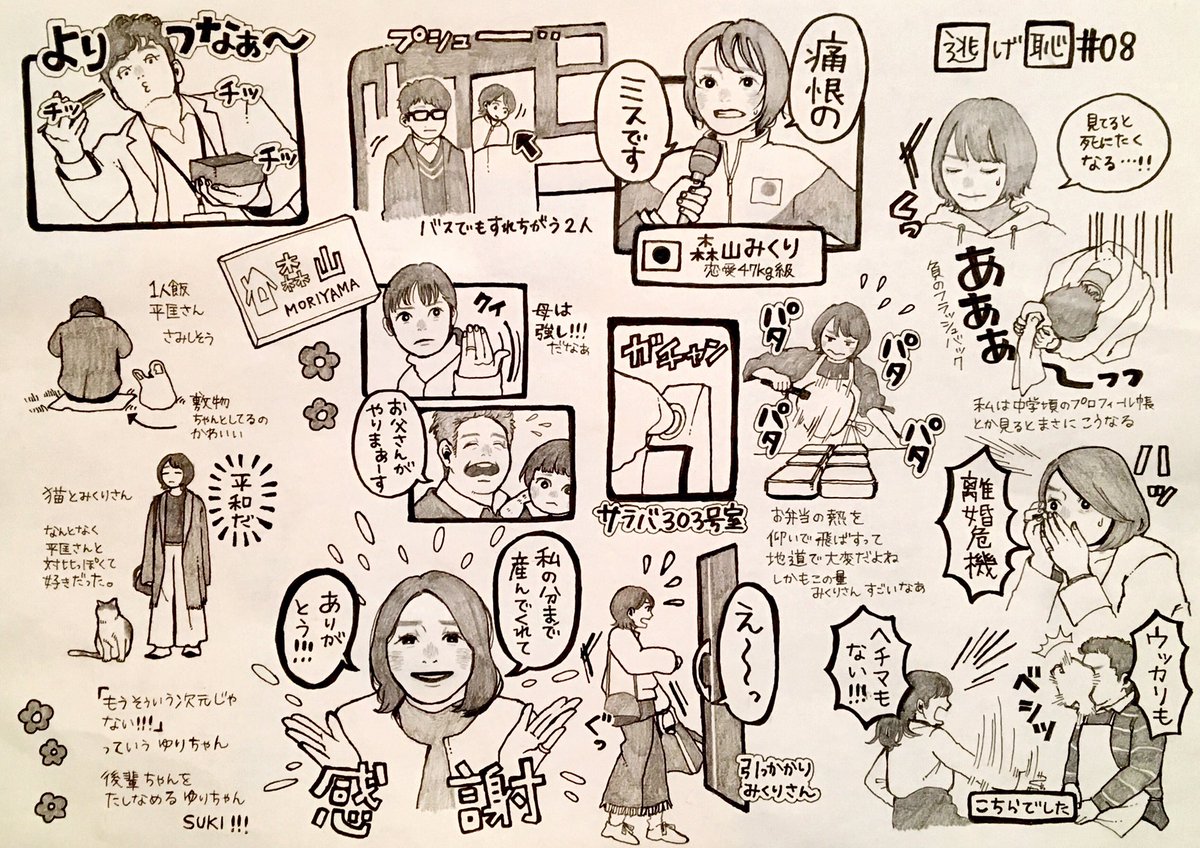 逃げ恥 #08
よりつなぁ〜
チッ
チッ
チッ
プシュー
バスでもすれちがう2人
痛恨の
ミスです
森山みくり
恋愛47kg級
見てると
死にたく
なる…!!
ぐっ
あぁぁぁ
負のフラッシュバック
〜っっ
私は中学頃のプロフィール帳
とか見るとまさにこうなる
1人飯
平匡さん
さみしそう
敷物
ちゃんとしてるの
かわいい
森山
MORIYAMA
クイ
母は
強し!!!
だなぁ
お父さんが
やりまぁーす
ガチャン
サラバ303号室
パタ
パタ
パタ
パタ
お弁当の熱を
仰いで飛ばすって
地道で大変だよね
しかもこの量
みくりさん すごいなぁ
ハッ
離婚危機
猫とみくりさん
なんとなく
平匡さんと
対比っぽくて
好きだった。
平和だ
「もうそういう次元じゃ
ない!!!」
っていう ゆりちゃん
後輩ちゃんを
たしなめる ゆりちゃん
SUKI!!!
私の分まで
産んでくれて
ありが
とう!!!
感謝
え〜〜っ
ぐっ
引っかかり
みくりさん
ウッカリも
ヘチマも
ない!!!
ベシッ
こちらでした